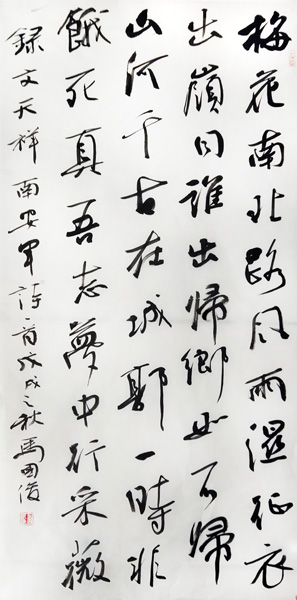 梅花南北路風雨濕征衣
出嶺同誰出歸鄉如不歸
山河千古在城郭一時非
餓死真吾志夢中行采薇
錄文天祥南安軍詩一首戊戌之秋馬國俊